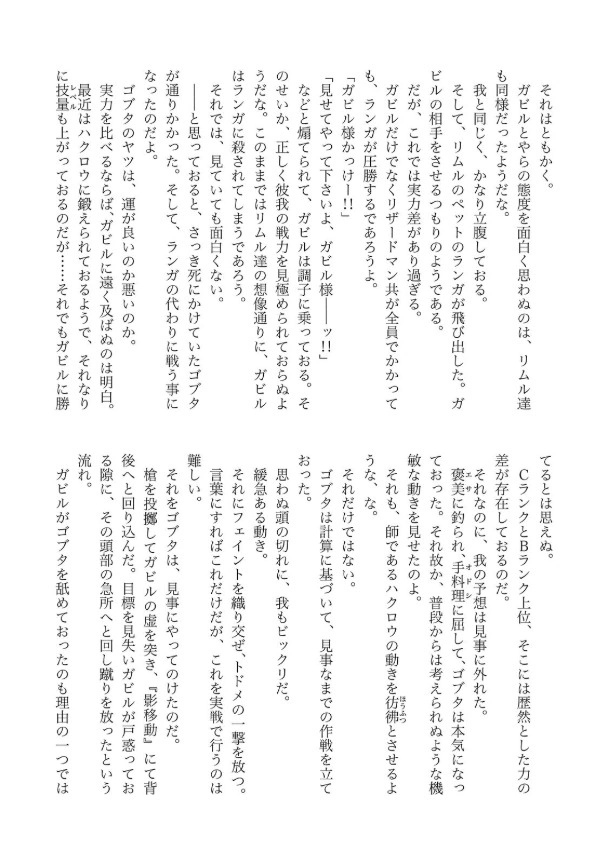 それはともかく。
ガビルとやらの態度を面白く思わぬのは、リムル達
も同様だったようだな。
我と同じく、かなり立腹しておる。
そして、リムルのペットのランガが飛び出した。ガ
ビルの相手をさせるつもりのようである。
だが、これでは実力差があり過ぎる。
ガビルだけでなくリザードマン共が全員でかかって
も、ランガが圧勝するであろうよ。
「ガビル様かっけー!!」
「見せてやって下さいよ、ガビル様――ッ!!」
などと煽てられて、ガビルは調子に乗っておる。そ
のせいか、正しく彼我の戦力を見極められておらぬよ
うだな。このままではリムル達の想像通りに、ガビル
はランガに殺されてしまうであろう。
それでは、見ていても面白くない。
――と思っておると、さっき死にかけていたゴブタ
が通りかかった。そして、ランガの代わりに戦う事に
なったのだよ。
ゴブタのヤツは、運が良いのか悪いのか。
実力を比べるならば、ガビルに遠く及ばぬのは明白。
最近はハクロウに鍛えられておるようで、それなり
に技量レベルも上がっておるのだが……それでもガビルに勝
てるとは思えぬ。
CランクとBランク上位、そこには歴然とした力の
差が存在しておるのだ。
それなのに、我の予想は見事に外れた。
褒美エサに釣られ、手料理オドシに屈して、ゴブタは本気になっ
ておった。それ故か、普段からは考えられぬような機
敏な動きを見せたのよ。
それも、師であるハクロウの動きを彷彿ほうふつとさせるよ
うな、な。
それだけではない。
ゴブタは計算に基づいて、見事なまでの作戦を立て
おった。
思わぬ頭の切れに、我もビックリだ。
緩急ある動き。
それにフェイントを織り交ぜ、トドメの一撃を放つ。
言葉にすればこれだけだが、これを実戦で行うのは
難しい。
それをゴブタは、見事にやってのけたのだ。
槍を投擲してガビルの虚を突き、『影移動』にて背
後へと回り込んだ。目標を見失いガビルが戸惑ってお
る隙に、その頭部の急所へと回し蹴りを放ったという
流れ。
ガビルがゴブタを舐めておったのも理由の一つでは